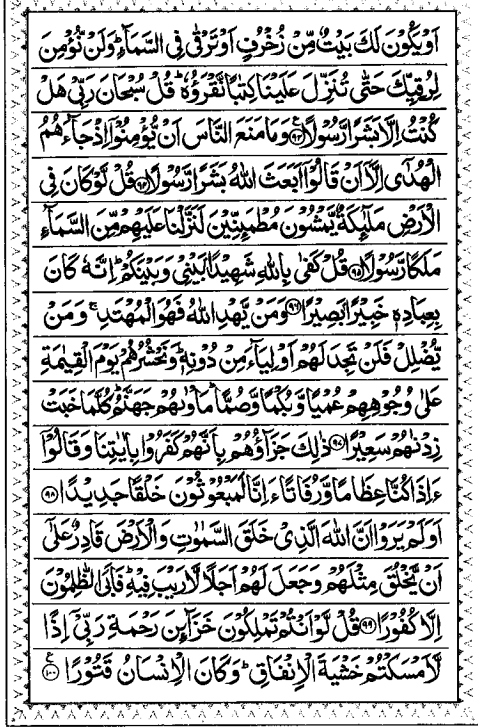 اَوْ يَكُوْنَ لَكَ بَيْتٌ مِّنْ زُخْرُفٍ اَوْ تَرْقٰى فِى السَّمَآءِ ؕ وَلَنْ نُّؤْمِنَ
لِرُقِيِّكَ حَتّٰى تُنَزِّلَ عَلَيْنَا كِتٰبًا نَّقْرَؤُهٗ ؕ قُلْ سُبْحَانَ رَبِّىْ هَلْ
كُنْتُ اِلَّا بَشَرًا رَّسُوْلًا ۩۹۳ وَمَا مَنَعَ النَّاسَ اَنْ يُّؤْمِنُوْۤا اِذْ جَآءَهُمُ
الْهُدٰٓى اِلَّاۤ اَنْ قَالُوْۤا اَبَعَثَ اللّٰهُ بَشَرًا رَّسُوْلًا ۹۴ قُلْ لَّوْ كَانَ فِى
الْاَرْضِ مَلٰٓئِكَةٌ يَّمْشُوْنَ مُطْمَئِنِّيْنَ لَنَزَّلْنَا عَلَيْهِمْ مِّنَ السَّمَآءِ
مَلَكًا رَّسُوْلًا ۹۵ قُلْ كَفٰى بِاللّٰهِ شَهِيْدًۢا بَيْنِىْ وَبَيْنَكُمْ ؕ اِنَّهٗ كَانَ
بِعِبَادِهٖ خَبِيْرًۢا بَصِيْرًا ۹۶ وَمَنْ يَّهْدِ اللّٰهُ فَهُوَ الْمُهْتَدِ ۚ وَمَنْ
يُّضْلِلْ فَلَنْ تَجِدَ لَهُمْ اَوْلِيَآءَ مِنْ دُوْنِهٖ ؕ وَنَحْشُرُهُمْ يَوْمَ الْقِيٰمَةِ
عَلٰى وُجُوْهِهِمْ عُمْيًا وَّبُكْمًا وَّصُمًّا ؕ مَاْوٰىهُمْ جَهَنَّمُ ؕ كُلَّمَا خَبَتْ
زِدْنٰهُمْ سَعِيْرًا ۹۷ ذٰلِكَ جَزَآؤُهُمْ بِاَنَّهُمْ كَفَرُوْا بِاٰيٰتِنَا وَقَالُوْۤا
ءَاِذَا كُنَّا عِظَامًا وَّرُفَاتًا ءَاِنَّا لَمَبْعُوْثُوْنَ خَلْقًا جَدِيْدًا ۹۸
اَوَلَمْ يَرَوْا اَنَّ اللّٰهَ الَّذِىْ خَلَقَ السَّمٰوٰتِ وَالْاَرْضَ قَادِرٌ عَلٰٓى
اَنْ يَّخْلُقَ مِثْلَهُمْ وَجَعَلَ لَهُمْ اَجَلًا لَّا رَيْبَ فِيْهِ ؕ فَاَبَى الظّٰلِمُوْنَ
اِلَّا كُفُوْرًا ۹۹ قُلْ لَّوْ اَنْتُمْ تَمْلِكُوْنَ خَزَآئِنَ رَحْمَةِ رَبِّىْۤ اِذًا
لَّاَمْسَكْتُمْ خَشْيَةَ الْاِنْفَاقِ ؕ وَكَانَ الْاِنْسَانُ قَتُوْرًا ۱۰۰